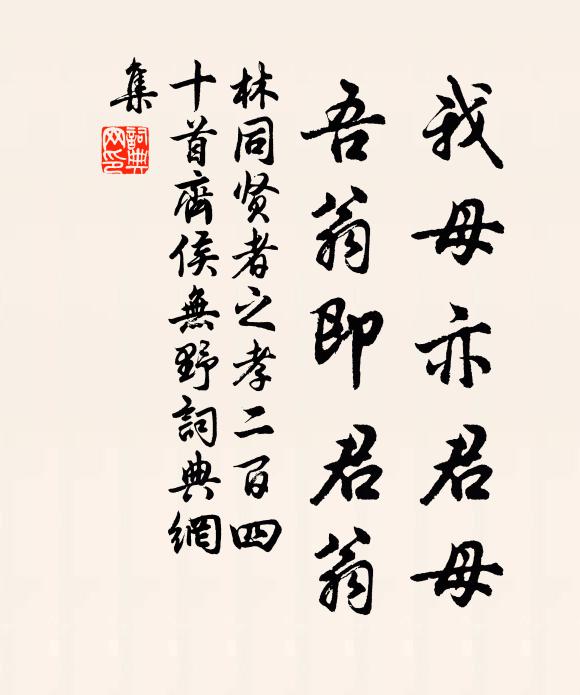 我母亦君母
吾翁即君翁
林同贤者之孝二百四
十首齊侯無野詞典網
集
詞典
网印